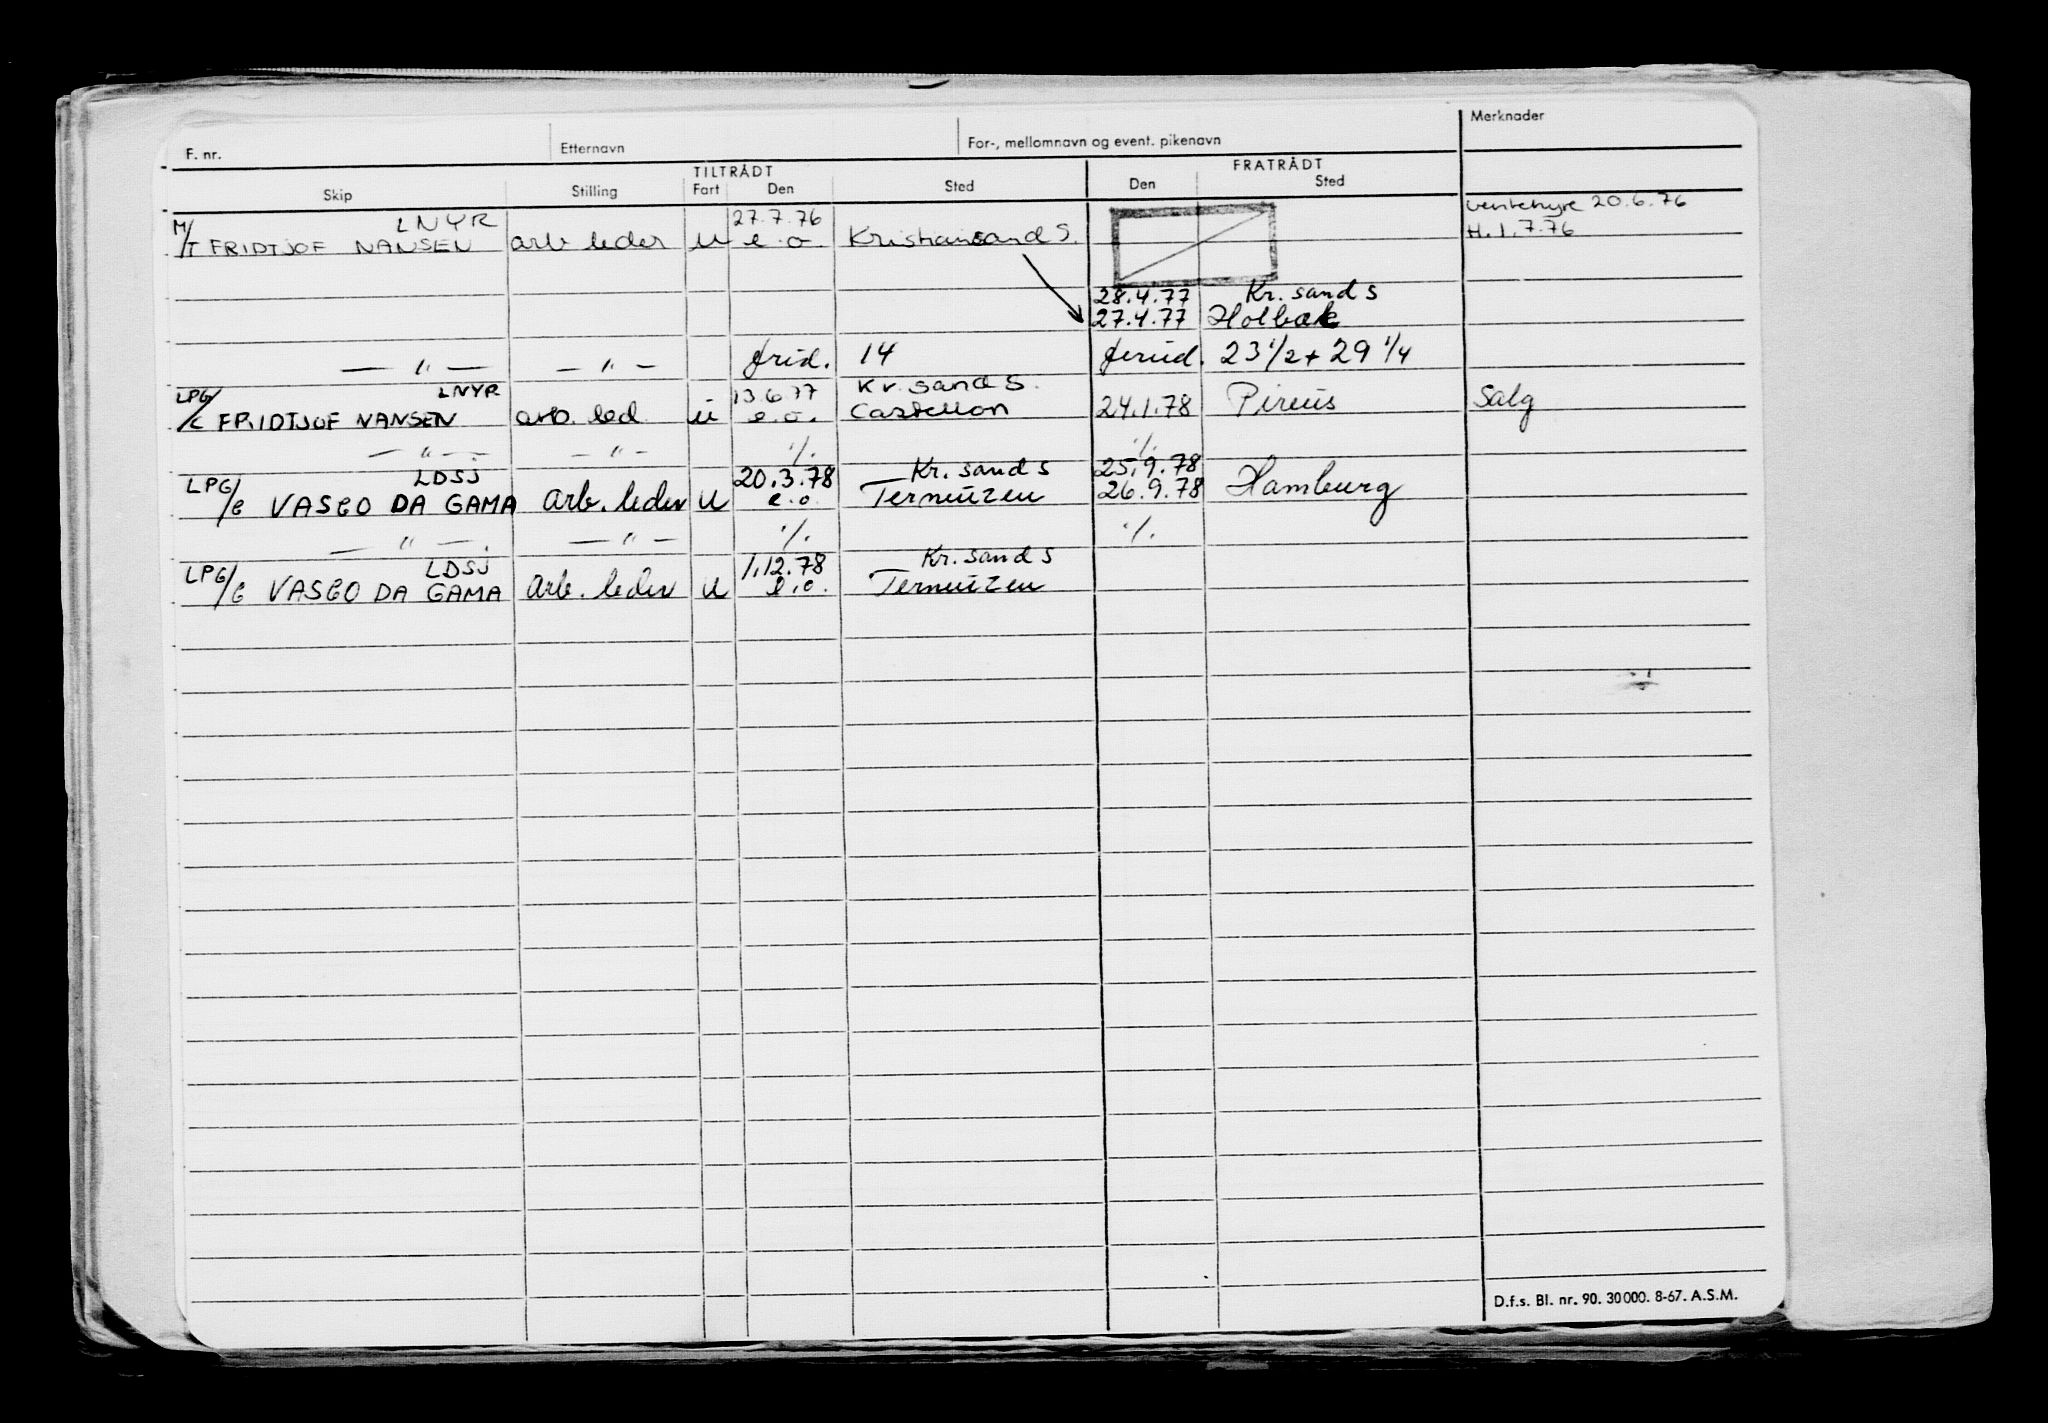 F. nr. Etternavn For-, mellomnavn og event. pikenavn Merknader
TILTRÅDT FRATRÅDT
Skip Stilling Fart Den Sted Den Sted
LNYR 27.7.76 ventehyre 20.6.76
M/T FRIDTJOF NANSEN arb leder u e.o. Kristiansand S. H. 1.7.76
28.4.77 Kr. sand S
27.4.77 Holbæk
— " — — " — frid. 14 feriid. 23 1/2 + 29 1/4
LNYR 13.6.77 Kr. sand S.
LPG/C FRIDTJOF NANSEN arb. led. u e.o. Castellon 24.1.78 Pireus Salg
— " — — " — ·/. ·/.
LDSJ 20.3.78 Kr. sand S 25.9.78
LPG/C VASCO DA GAMA arb. leder u e.o. Terneuzen 26.9.78 Hamburg
— " — — " — ·/. ·/.
LDSJ 1.12.78 Kr. sand S
LPG/C VASCO DA GAMA arb. leder u e.o. Terneuzen
D.f.s. Bl. nr. 90. 30000. 8-67. A.S.M.